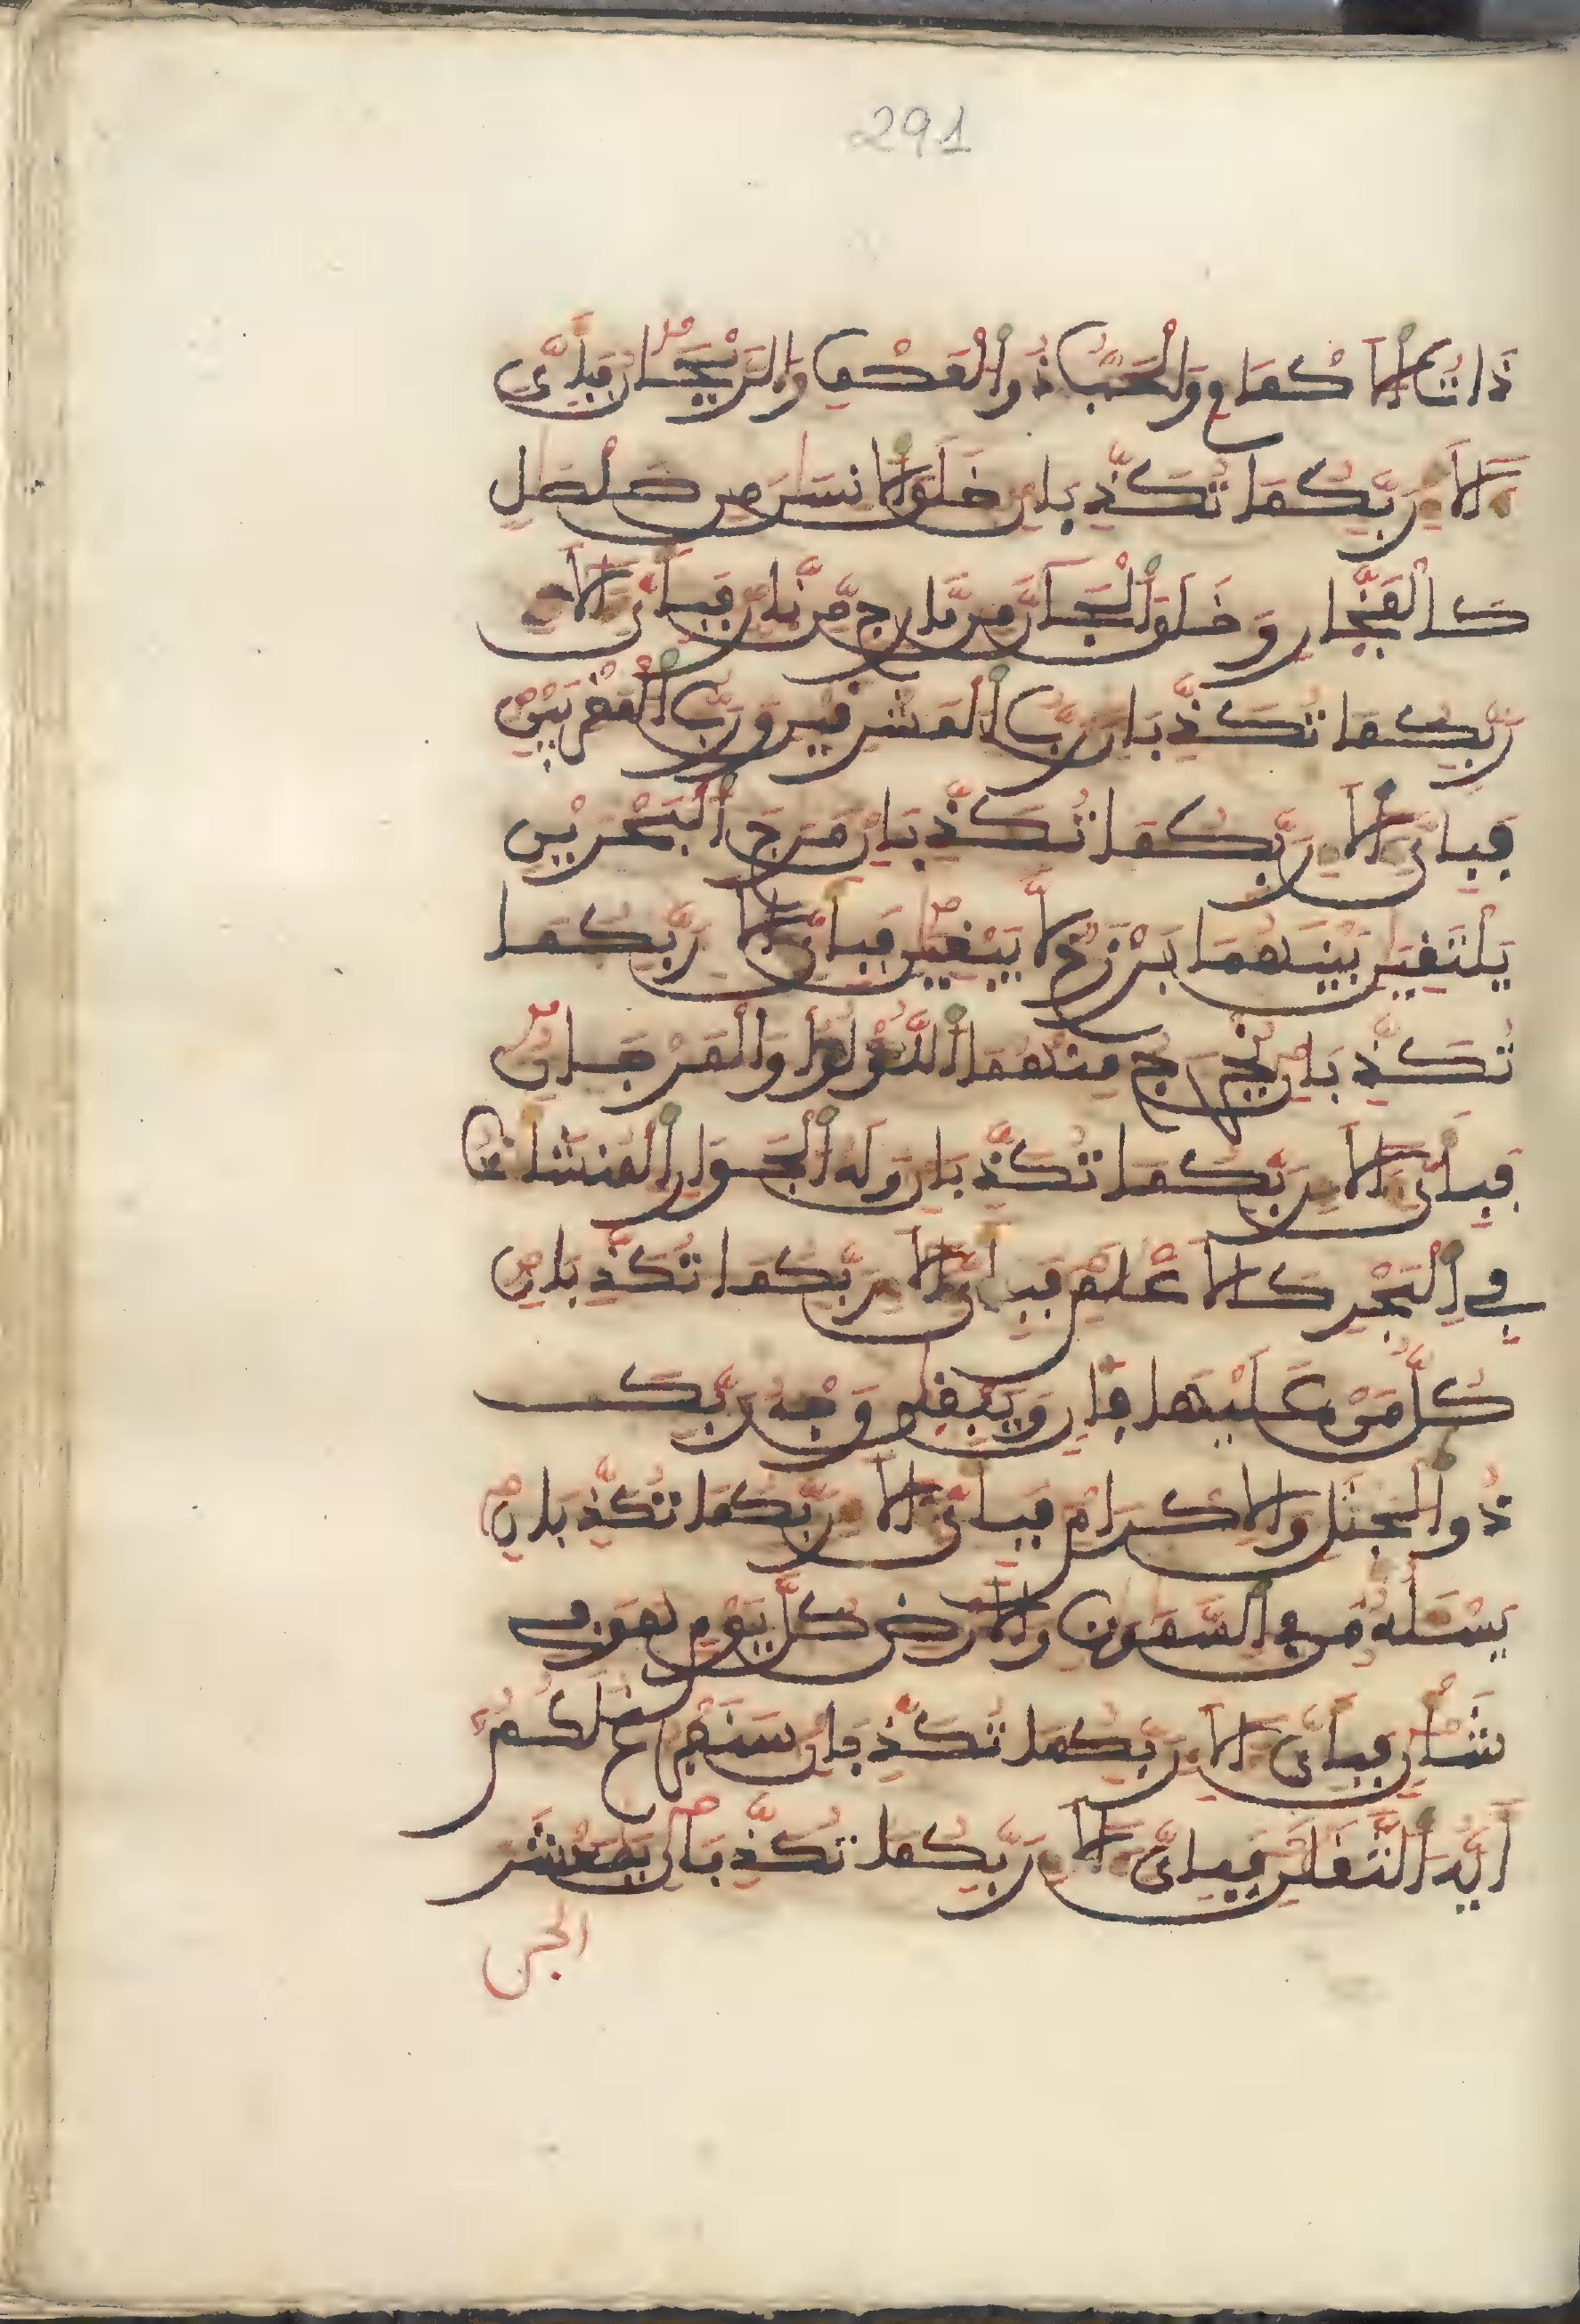 291
ذَاتُ اَلَاكْمَامِ وَالْحَبُّ ذُو اُلْعَصْفِ وَالرَّيْحَانُ فَبِأَيِّ
ءَالَآءِ رَبِّكُمَا تُكَذِّبَانِ خَلَقَ اَلِانسَٰنَ مِن صَلْصَٰلٍ
كَالْفَخَّارِ وَخَلَقَ اَلْجَآنَّ مِن مَّارِجٍ مِّن نَّارٍ فَبِأَيِّ ءَالَآءِ
رَبِّكُمَا تُكَذِّبَانِ رَبُّ اُلْمَشْرِقَيْنِ وَرَبُّ اُلْمَغْرِبَيْنِ
فَبِأَيِّ ءَالَآءِ رَبِّكُمَا تُكَذِّبَانِ مَرَجَ اَلْبَحْرَيْنِ
يَلْتَقِيَٰنِ بَيْنَهُمَا بَرْزَخٌ لَّا يَبْغِيَٰنِ فَبِأَيِّ ءَالَآءِ رَبِّكُمَا
تُكَذِّبَانِ يُخْرَجُ مِنْهُمَا اَللُّؤْلُؤُا وَالْمَرْجَانُ
فَبِأَيِّ ءَالَآءِ رَبِّكُمَا تُكَذِّبَانِ وَلَهُ اُلْجَوَارِ اِلْمُنشَـَٔاتُ
فِي اِلْبَحْرِ كَالَاعْلَٰمِ فَبِأَيِّ ءَالَآءِ رَبِّكُمَا تُكَذِّبَانِ
كُلُّ مَنْ عَلَيْهَا فَانٍ وَيَبْقَىٰ وَجْهُ رَبِّكَ
ذُو اُلْجَلَٰلِ وَالِاكْرَامِ فَبِأَيِّ ءَالَآءِ رَبِّكُمَا تُكَذِّبَانِ
يَسْـَٔلُهُ مَن فِي اِلسَّمَٰوَٰتِ وَالَارْضِ كُلَّ يَوْمٍ هُوَ فِي
شَأْنٍ فَبِأَيِّ ءَالَآءِ رَبِّكُمَا تُكَذِّبَانِ سَنَفْرُغُ لَكُمُ
أَيُّهَ اَلثَّقَلَٰنِ فَبِأَيِّ ءَالَآءِ رَبِّكُمَا تُكَذِّبَانِ يَٰمَعْشَرَ
الجن